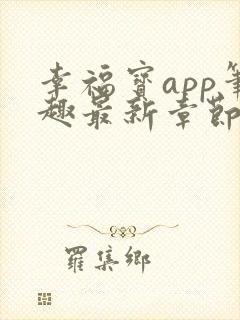 幸福寳app筆
趣最新章節
羅集鄉